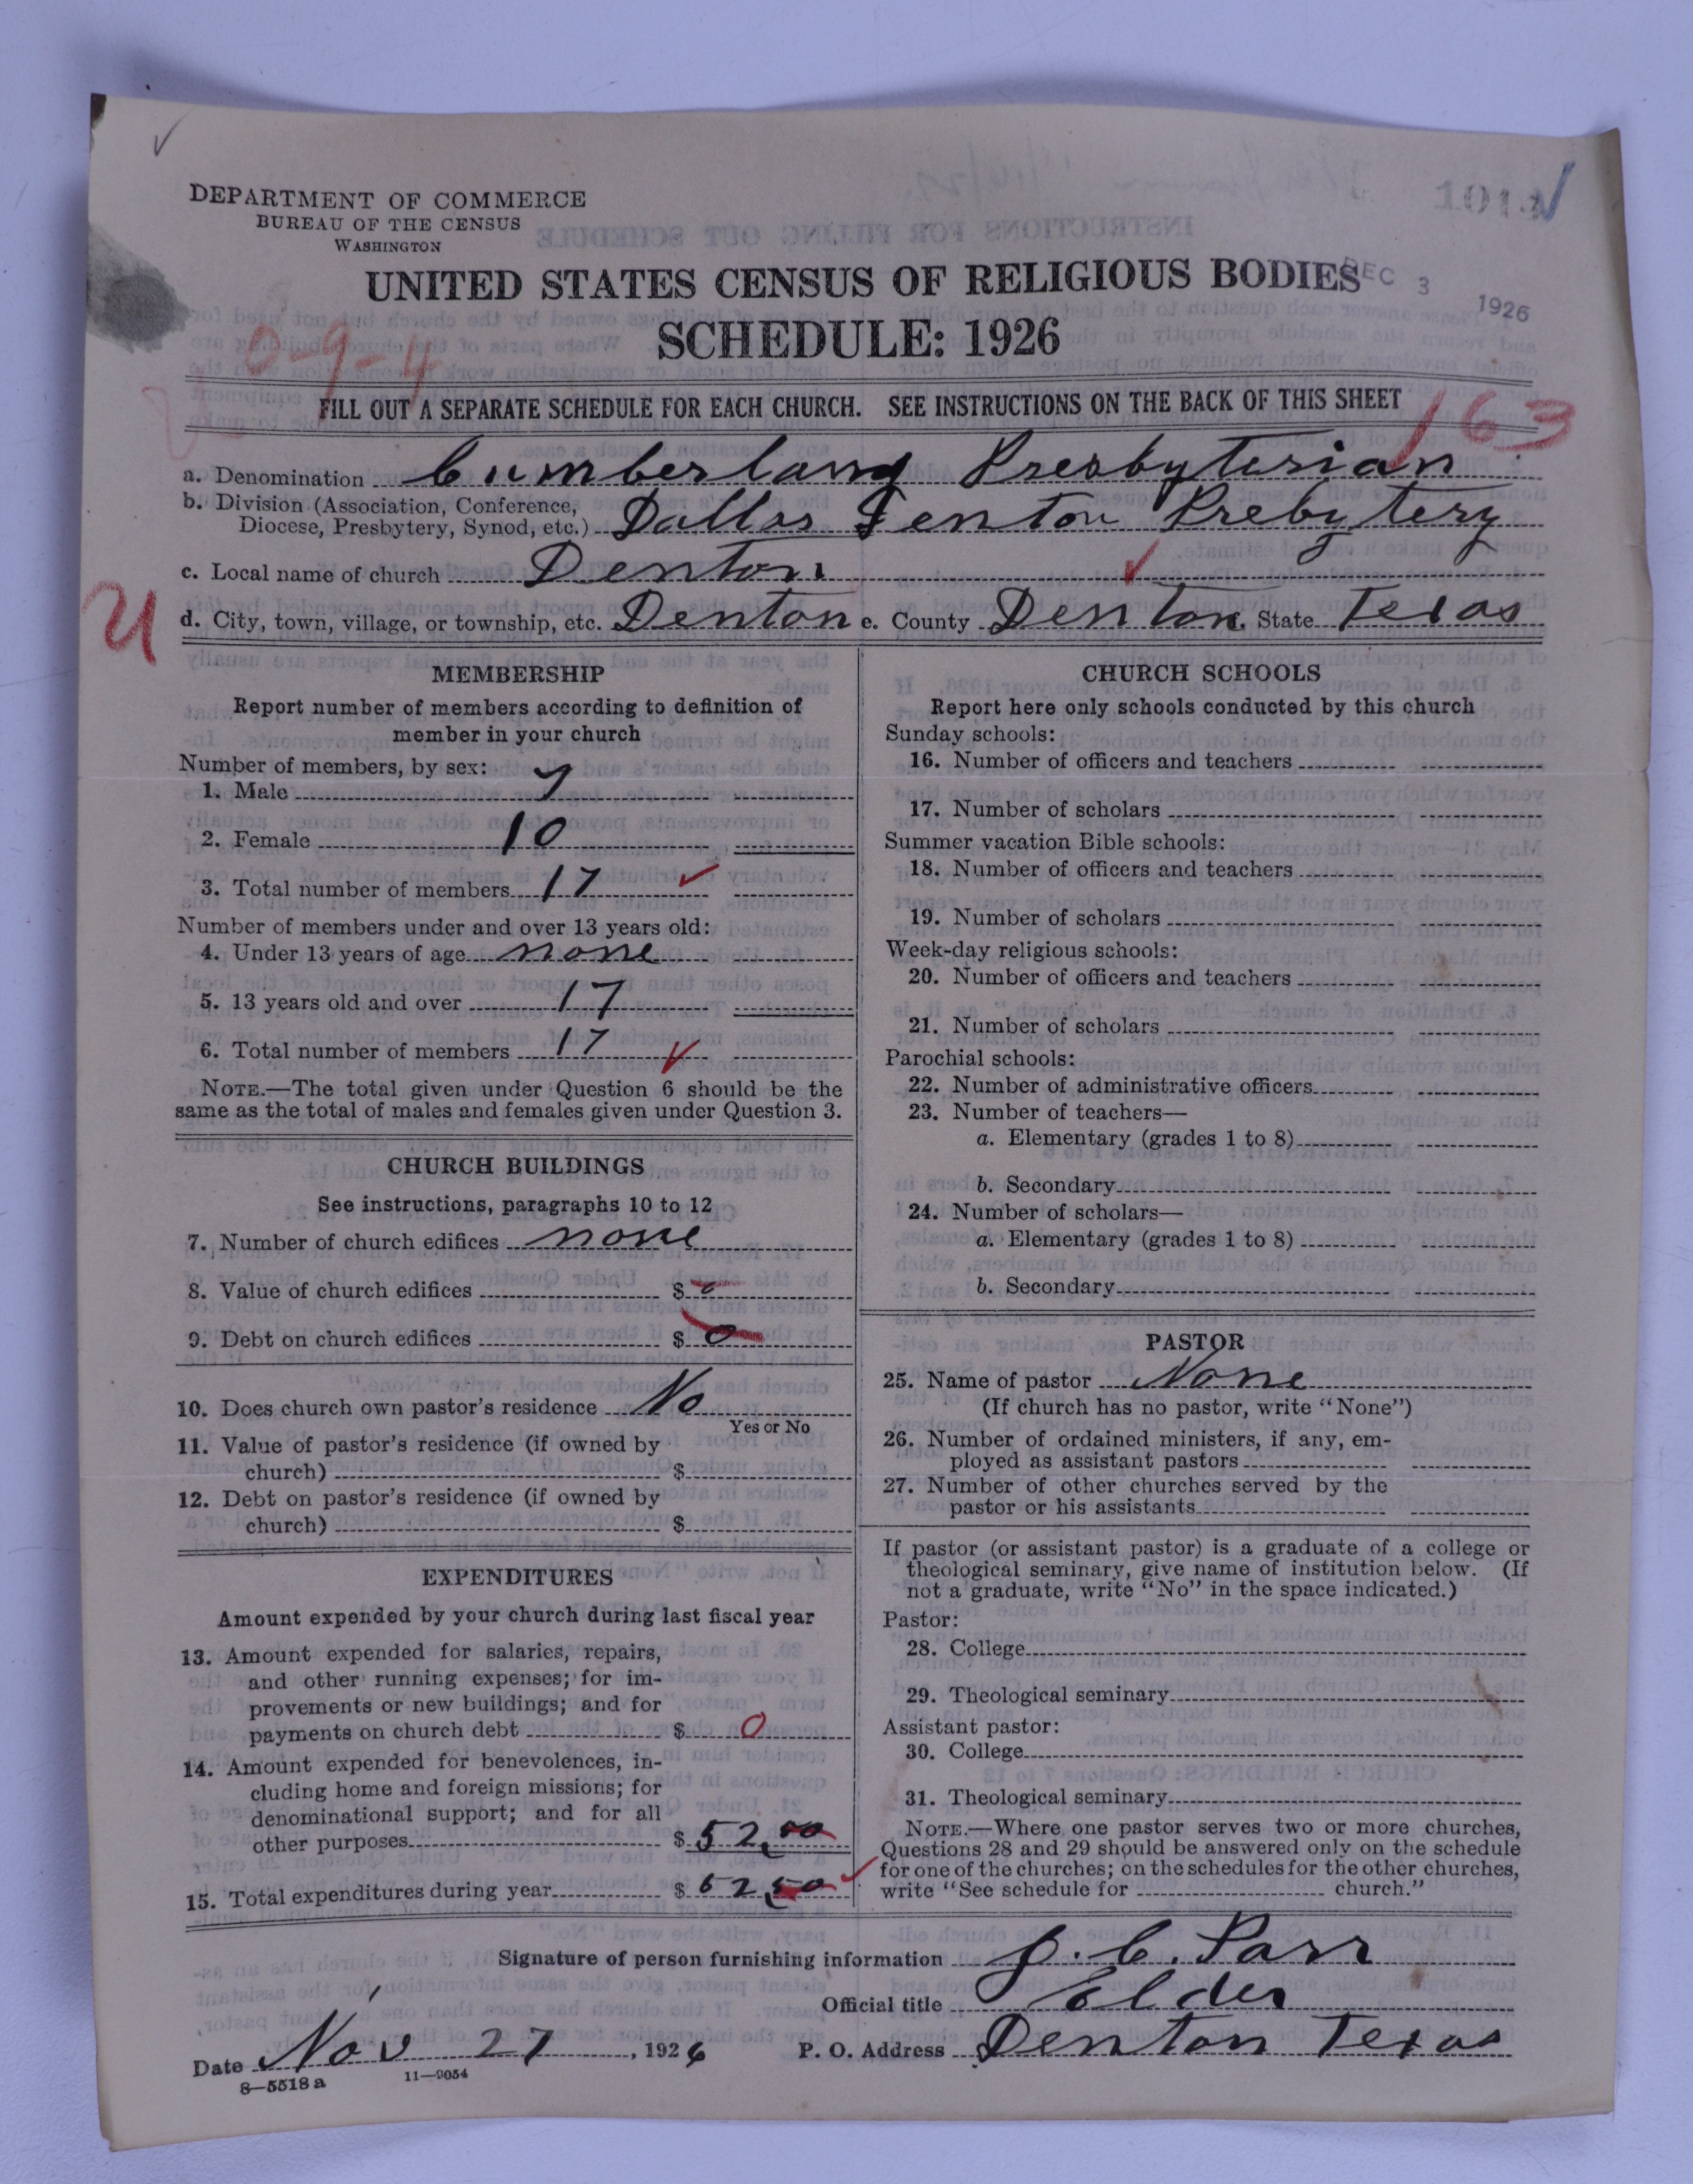 DEPARTMENT OF COMMERCE
BUREAU OF THE CENSUS
WASHINGTON
UNITED STATES CENSUS OF RELIGIOUS BODIES
DEC 3 1926
SCHEDULE: 1926
0-9-4
FILL OUT A SEPARATE SCHEDULE FOR EACH CHURCH. SEE INSTRUCTIONS ON THE BACK OF THIS SHEET
163
a. Denomination Cumberland Presbyterian
b. Division (Association, Conference,
Diocese, Presbytery, Synod, etc.) Dallas Denton Prebytery
c. Local name of church Denton
d. City, town, village, or township, etc. Denton e. County Denton State Texas
MEMBERSHIP
Report number of members according to definition of
member in your church
Number of members, by sex:
1. Male 7
2. Female 10
3. Total number of members 17
Number of members under and over 13 years old:
4. Under 13 years of age none
5. 13 years old and over 17
6. Total number of members 17
NOTE.—The total given under Question 6 should be the
same as the total of males and females given under Question 3.
CHURCH BUILDINGS
See instructions, paragraphs 10 to 12
7. Number of church edifices none
8. Value of church edifices $ 0
9. Debt on church edifices $ 0
10. Does church own pastor's residence No
Yes or No
11. Value of pastor's residence (if owned by
church) $
12. Debt on pastor's residence (if owned by
church) $
EXPENDITURES
Amount expended by your church during last fiscal year
13. Amount expended for salaries, repairs,
and other running expenses; for im-
provements or new buildings; and for
payments on church debt $ 0
14. Amount expended for benevolences, in-
cluding home and foreign missions; for
denominational support; and for all
other purposes $ 52,50
15. Total expenditures during year $ 52,50
CHURCH SCHOOLS
Report here only schools conducted by this church
Sunday schools:
16. Number of officers and teachers
17. Number of scholars
Summer vacation Bible schools:
18. Number of officers and teachers
19. Number of scholars
Week-day religious schools:
20. Number of officers and teachers
21. Number of scholars
Parochial schools:
22. Number of administrative officers
23. Number of teachers—
a. Elementary (grades 1 to 8)
b. Secondary
24. Number of scholars—
a. Elementary (grades 1 to 8)
b. Secondary
PASTOR
25. Name of pastor None
(If church has no pastor, write "None")
26. Number of ordained ministers, if any, em-
ployed as assistant pastors
27. Number of other churches served by the
pastor or his assistants
If pastor (or assistant pastor) is a graduate of a college or
theological seminary, give name of institution below. (If
not a graduate, write "No" in the space indicated.)
Pastor:
28. College
29. Theological seminary
Assistant pastor:
30. College
31. Theological seminary
NOTE.—Where one pastor serves two or more churches,
Questions 28 and 29 should be answered only on the schedule
for one of the churches; on the schedules for the other churches,
write "See schedule for church."
Signature of person furnishing information J. C. Parr
Official title Elder
Date Nov 27, 1926 P. O. Address Denton Texas
8—5518 a 11—9054